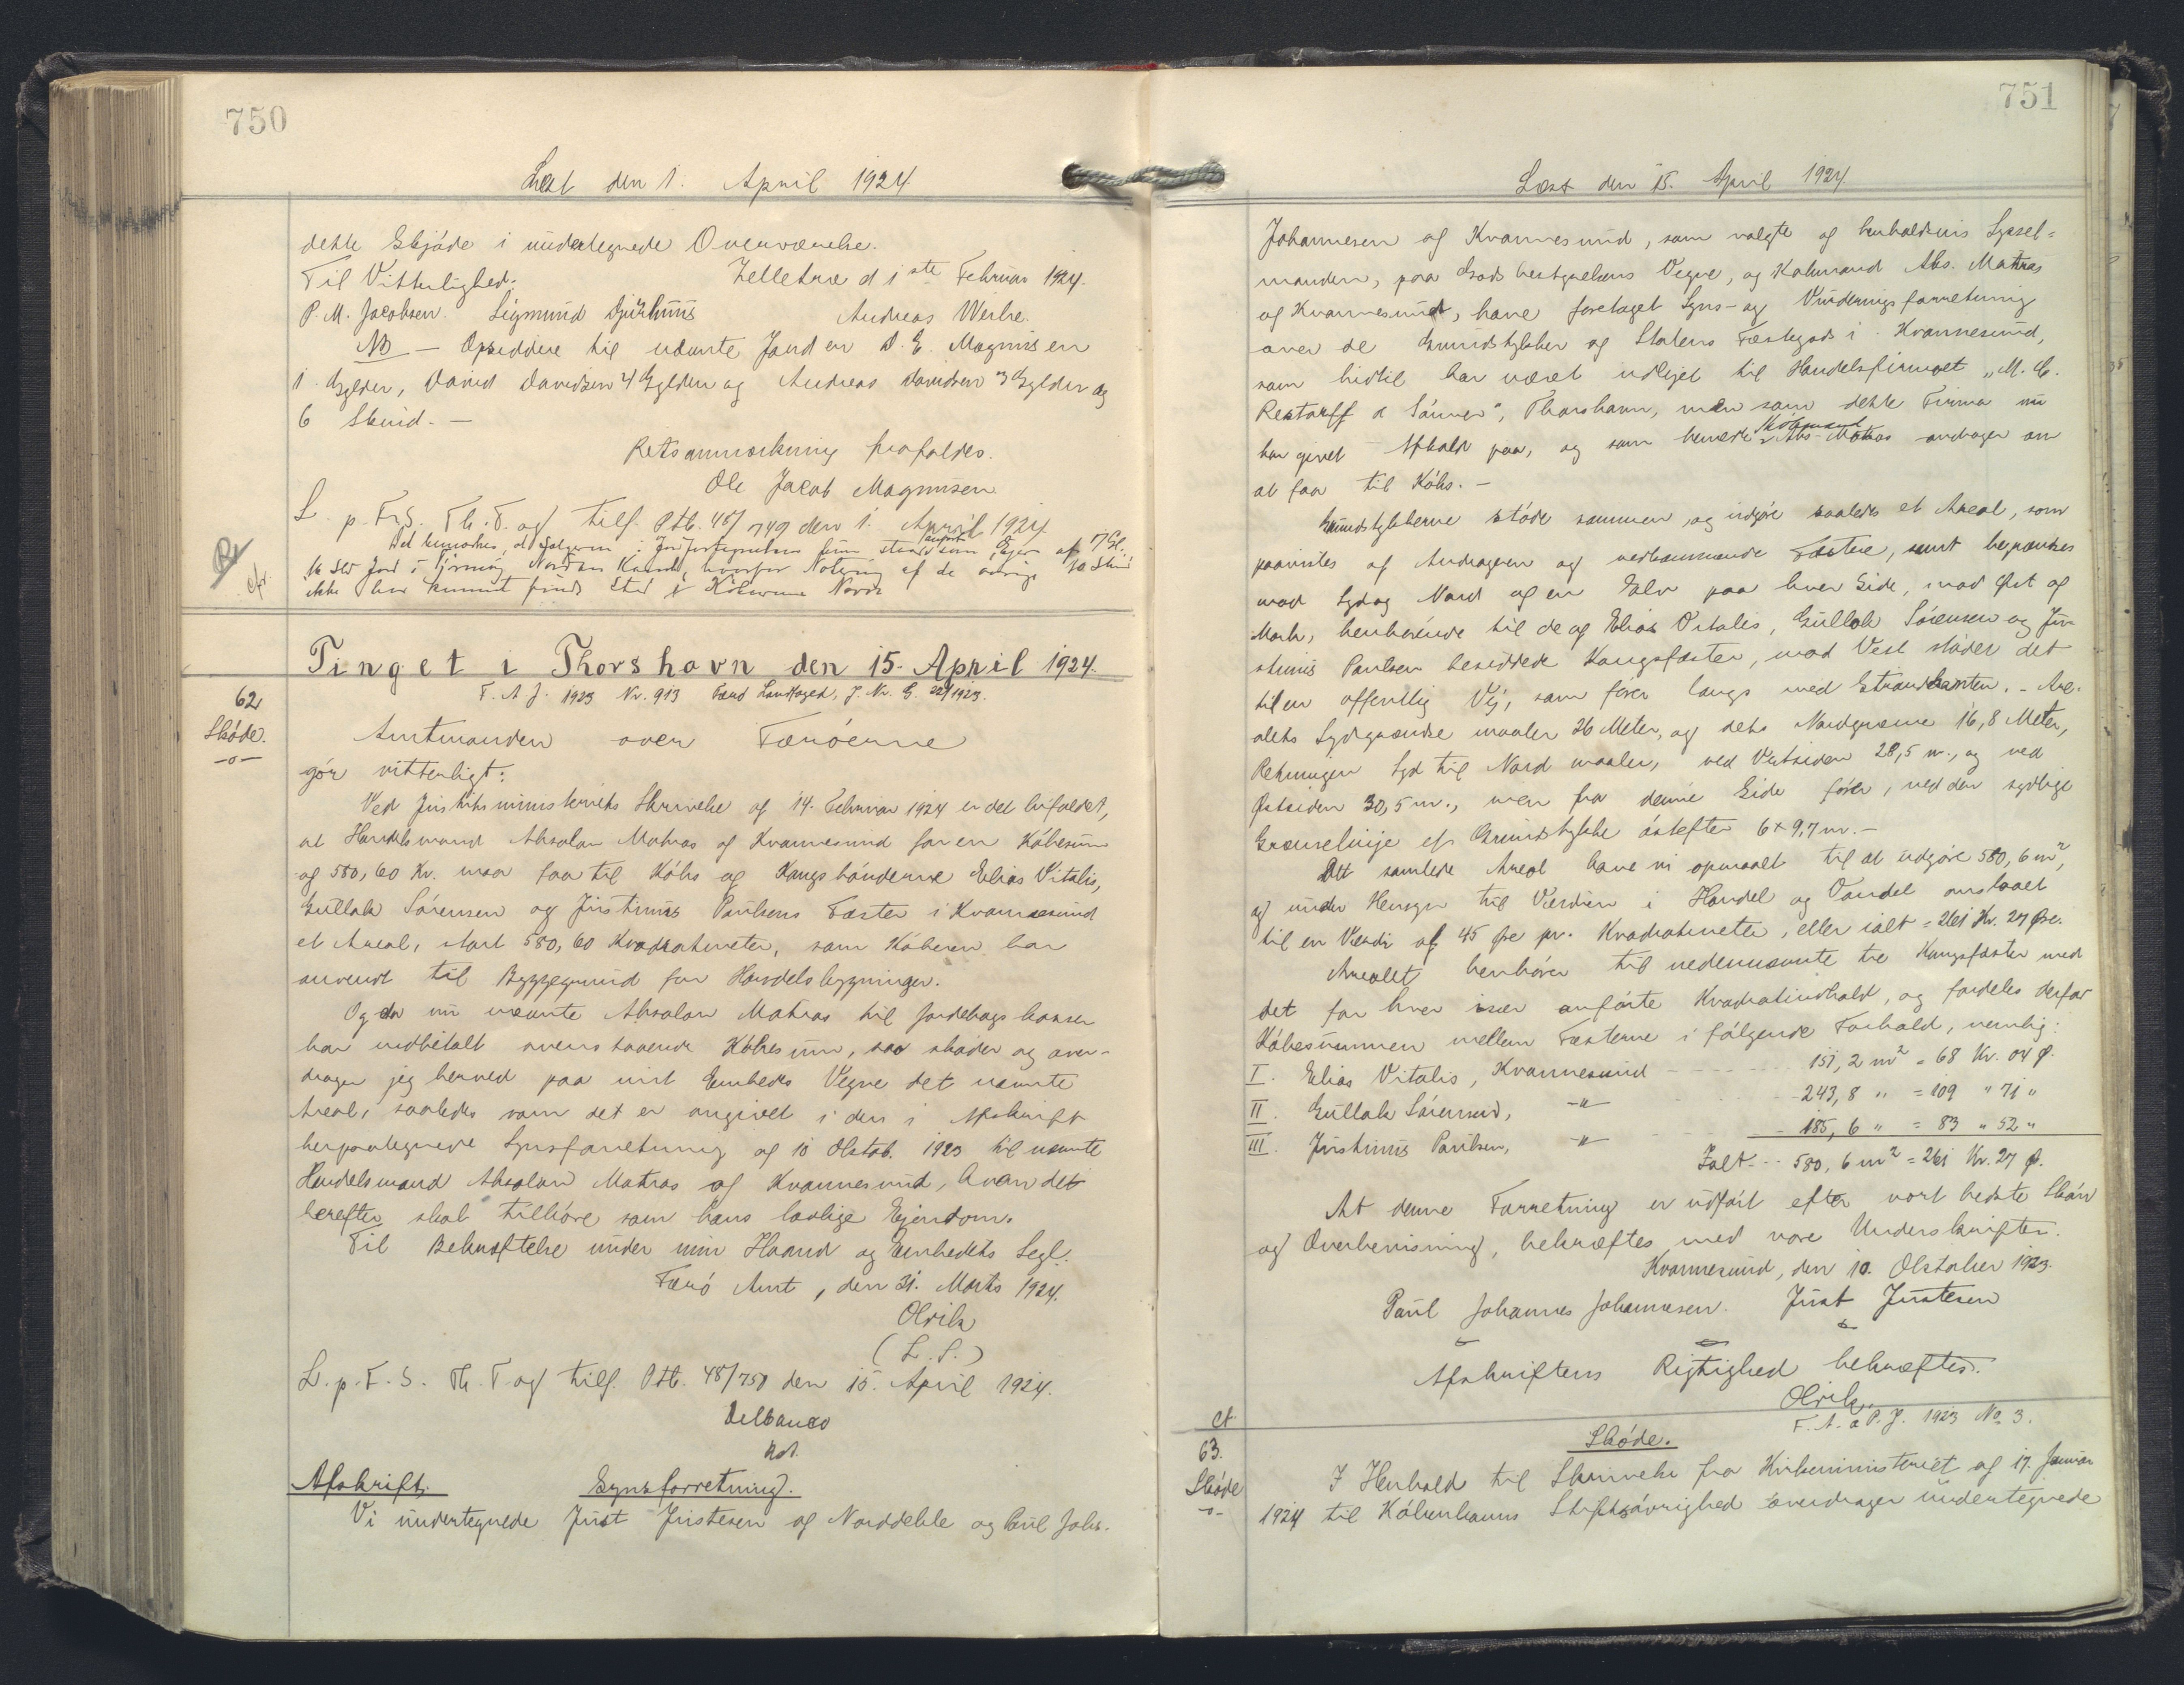 750
Læst den 1. April 1924.
dette Skjøde i undertegnede Overværelse.
Til Vitterlighed: Zelletræ d 1ste Februar 1924.
P. M. Jacobsen. Sigmund Djurhuus Andreas Weihe.
NB — Opsiddere til nævnte Jord er D. E. Magnusen
1 Gylden, David Davidsen 4 Gylden og Andreas Davidsen 3 Gylden og
6 Skind. —
Retsanmærkning frafaldes.
Ole Jacob Magnusen
L. p. F. S. Th. T. og tilf. Ptb. 48/749 den 1. April 1924.
Det bemærkes, at Sælgeren i kun staar anført som Ejer af 7 Gl.
Jord i Norden hvorfor Notering af de øvrige 10 Skind
ikke har kunnet finde Sted
Tinget i Thorshavn den 15. April 1924.
F. A. J. 1923 Nr. 913 Færø Landfoged, J. Nr. G. 22/1923.
62
Skøde.
—o—
Amtmanden over Færøerne
gør vitterligt:
Ved Justitsministeriets Skrivelse af 14. Februar 1924 er det bifaldet,
at Handelsmand Absalon Matras af Kvannesund for en Købesum
af 580,60 Kr. maa faa til Købs af Kongsbønderne Elias Vitalis,
Gullak Sørensen og Justinus Paulsens Fæster i Kvannesund
et Areal, stort 580,60 Kvadratmeter, som Køberen har
anvendt til Byggegrund for Handelsbygninger.
Og da nu nævnte Absalon Matras til Jordebogskassen
har indbetalt ovenstaaende Købesum, saa skøder og over-
drager jeg herved paa mit Embeds Vegne det nævnte
Areal, saaledes som det er angivet i den i Afskrift
herpaategnede Synsforretning af 10 Oktob. 1923 til nævnte
Handelsmand Absalon Matras af Kvannesund, hvem det
herefter skal tilhøre som hans lovlige Ejendom.
Til Bekræftelse under min Haand og Embedets Segl.
Færø Amt, den 31. Marts 1924.
Olrik
(L. S.)
L. p. F. S. Th. T. og tilf. Ptb. 48/750 den 15. April 1924.
Delbanco
kst.
Afskrift. Synsforretning.
Vi undertegnede Just Justesen af Norddeble og Poul Johs.
751
Læst den 15. April 1924.
Johannesen af Kvannesund, som valgte af henholdsvis Syssel-
manden, paa Godsbestyrelsens Vegne, og Købmand Abs. Matras
af Kvannesund, have foretaget Syns- og Vurderingsforretning
over de Grundstykker af Statens Fæstegods i Kvannesund,
som hidtil har været udlejet til Handelsfirmaet „M. C.
Restorff & Sønner", Thorshavn, men som dette Firma nu
har givet Afkald paa, og som bemeldte Købmand Abs. Matras andrager om
at faa til Købs. —
Grundstykkerne støde sammen og udgøre saaledes et Areal, som
paavistes af Andrageren og vedkommende Fæstere, samt begrænses
mod Syd og Nord af en Elv paa hver Side, mod Øst af
Mark, henhørende til de af Elias Vitalis, Gullak Sørensen og Ju-
stinus Paulsen besiddede Kongsfæster, mod Vest støder det
til en offentlig Vej, som fører langs med Strandkanten. – Are-
alets Sydgrænse maaler 26 Meter, og dets Nordgrænse 16,8 Meter,
Retningen Syd til Nord maaler, ved Vestsiden 28,5 m., og ved
Østsiden 30,5 m., men fra denne Side fører, ved den sydlige
Grænselinje et Grundstykke østefter 6 x 9,7 m. —
Det samlede Areal have vi opmaalt til at udgøre 580,6 m²,
og under Hensyn til Værdien i Handel og Vandel ansloaet
til en Værdi af 45 Øre pr. Kvadratmeter, eller ialt = 261 Kr. 27 Øre.
Arealet henhører til nedennævnte tre Kongsfæster med
det for hver især anførte Kvadratindhold, og fordeles derfor
Købesummen mellem Fæsterne i følgende Forhold, nemlig:
I. Elias Vitalis, Kvannesund - - - 151,2 m² = 68 Kr. 04 Ø.
II. Gullak Sørensen, —"— - - - 243,8 " = 109 " 71 "
III. Justinus Paulsen, —"— - - - 185,6 " = 83 " 52 "
Ialt - - 580,6 m² = 261 Kr. 27 Ø.
At denne Forretning er udført efter vort bedste Skøn
og Overbevisning, bekræftes med vore Underskrifter.
Kvannesund, den 10. Oktober 1923.
Poul Johannes Johannesen. Just Justesen
Afskriftens Rigtighed bekræftes.
Olrik
F. A. a P. J. 1923 No 3.
Ct
63.
Skøde
—o—
Skøde.
I Henhold til Skrivelse fra Kirkeministeriet af 17. Januar
1924 til Københavns Stiftsøvrighed overdrager undertegnede